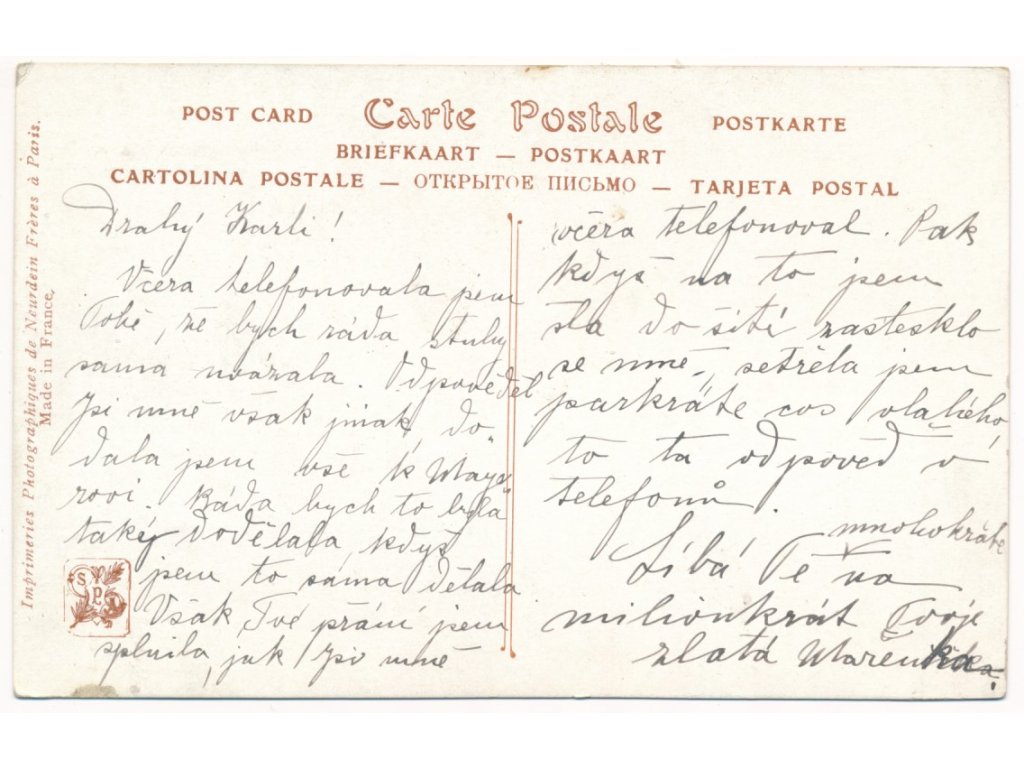 POST CARD Carte Postale POSTKARTE
BRIEFKAART — POSTKAART
CARTOLINA POSTALE — ОТКРЫТОЕ ПИСЬМО — TARJETA POSTAL
Imprimeries Photographiques de Neurdein Frères à Paris.
Made in France.
Drahý Karli!
Včera telefonovala jsem
Tobě, že bych ráda stuhy
sama uvázala. Odpověděl
jsi mně však jinak, do-
dala jsem vše k Mayr
rovi. Ráda bych to byla
také dodělala, když
jsem to sama dělala
Však Tvé přání jsem
splnila, jak jsi mně
SPI
včera telefonoval. Pak
když na to jsem
šla do šití zastesklo
se mně, setřela jsem
parkráte cos vlahého,
to ta odpověď v
telefonů.
mnohokráte
Líbá Tě na
milionkrát Tvoje
zlatá Mařenka.